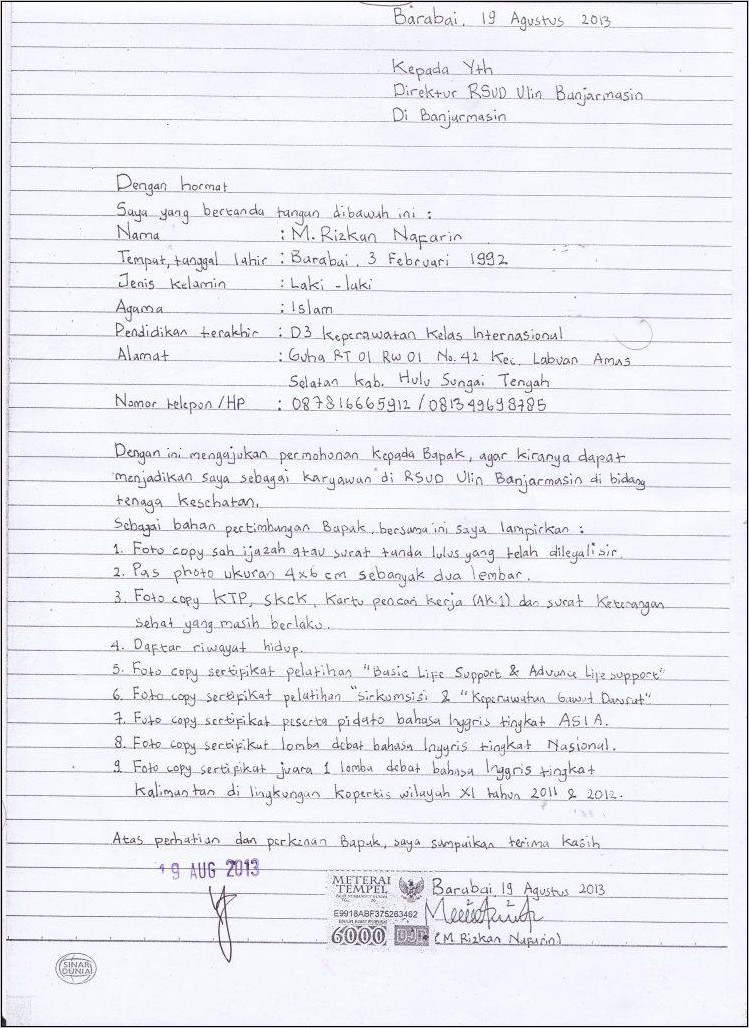 Barabai, 19 Agustus 2013
Kepada Yth
Direktur RSUD Ulin Banjarmasin
Di Banjarmasin
Dengan hormat
Saya yang bertanda tangan dibawah ini :
Nama : M. Rizkan Nafarin
Tempat, tanggal lahir : Barabai, 3 Februari 1992
Jenis Kelamin : Laki - laki
Agama : Islam
Pendidikan terakhir : D3 Keperawatan Kelas Internasional
Alamat : Guha RT 01 RW 01 No. 42 Kec. Labuan Amas
Selatan Kab. Hulu Sungai Tengah
Nomor telepon / HP : 087816665912 / 081349698785
Dengan ini mengajukan permohonan Kepada Bapak, agar kiranya dapat
menjadikan saya sebagai karyawan di RSUD Ulin Banjarmasin di bidang
tenaga Kesehatan.
Sebagai bahan pertimbangan Bapak, bersama ini saya lampirkan :
1. Foto copy sah ijazah atau surat tanda lulus yang telah dilegalisir.
2. Pas photo ukuran 4x6 cm sebanyak dua lembar.
3. Foto copy KTP, SKCK, Kartu pencari kerja (AK.1) dan surat Keterangan
sehat yang masih berlaku.
4. Daftar riwayat hidup.
5. Foto copy sertifikat pelatihan "Basic Life Support & Advance Life support"
6. Foto copy sertifikat pelatihan "Sirkumsisi & "Keperawatan Gawat Darurat"
7. Foto copy sertifikat peserta pidato bahasa Inggris tingkat ASIA.
8. Foto copy sertifikat lomba debat bahasa Inggris tingkat Nasional.
9 Foto copy sertifikat juara 1 lomba debat bahasa Inggris tingkat
Kalimantan di lingkungan Kopertis wilayah XI tahun 2011 & 2012.
Atas perhatian dan perkenan Bapak, saya sampaikan terima kasih
19 AUG 2013
METERAI
TEMPEL
E9918ABF375263462
6000 DJP
Barabai, 19 Agustus 2013
(M. Rizkan Nafarin)
SINAR
DUNIA